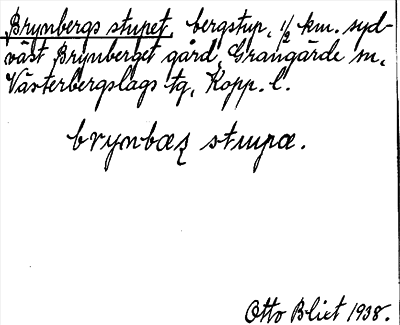 Brynbergs stupet, bergstup, 1/2 km. syd-
väst Brynberget gård, Grangärde sn,
Västerbergslags tg, Kopp. l.
brynbæʒ stupæ.
Otto Blixt 1938.